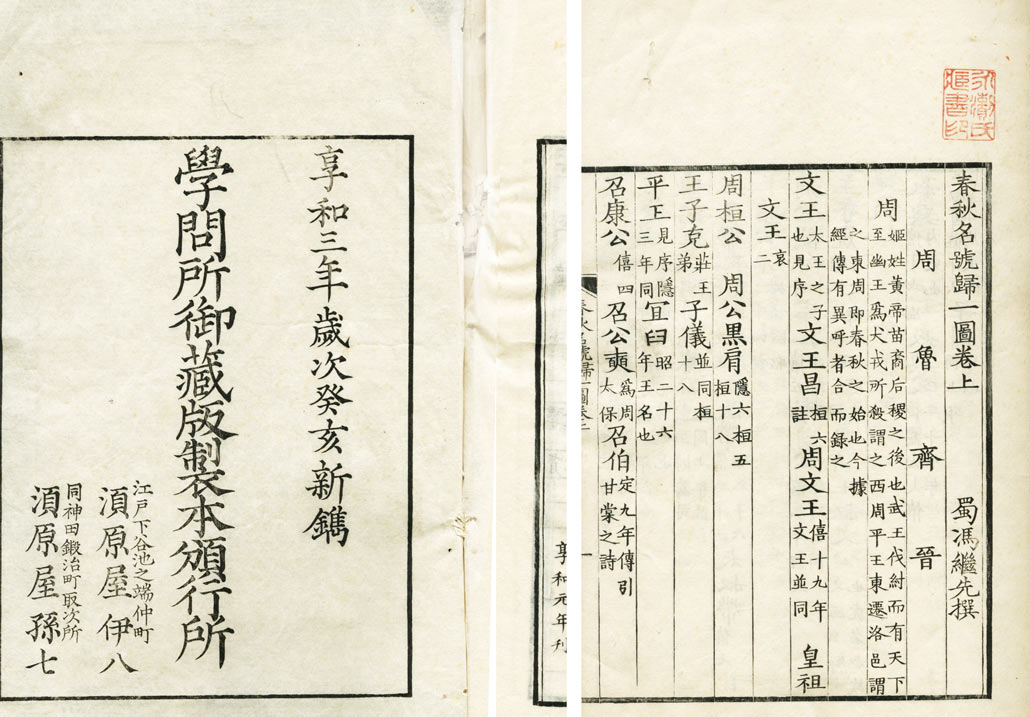 春秋名號歸一圖卷上 蜀馮繼先撰
周 魯 齊 晉
周 姬姓黃帝苗裔后稷之後也武王伐紂而有天下
至幽王爲犬戎所殺謂之西周平王東遷洛邑謂
之東周即春秋之始也今據
經傳有異呼者合而錄之
文王 太王之子也見序 文王昌 桓六註 周文王 僖十九年文王並同 皇祖
文王 哀二
周桓公 周公黑肩 隱六桓五桓十八
王子克 莊王弟 子儀 並同桓十八
平王 見序隱三年同 宜臼 昭二十六年王名也
召康公 僖四 召公奭 爲周太保 召伯 定九年傳引甘棠之詩
一
享和元年刊
享和三年歲次癸亥新鐫
學問所御藏版製本頒行所
江戸下谷池之端仲町
須原屋伊八
同神田鍛治町取次所
須原屋孫七